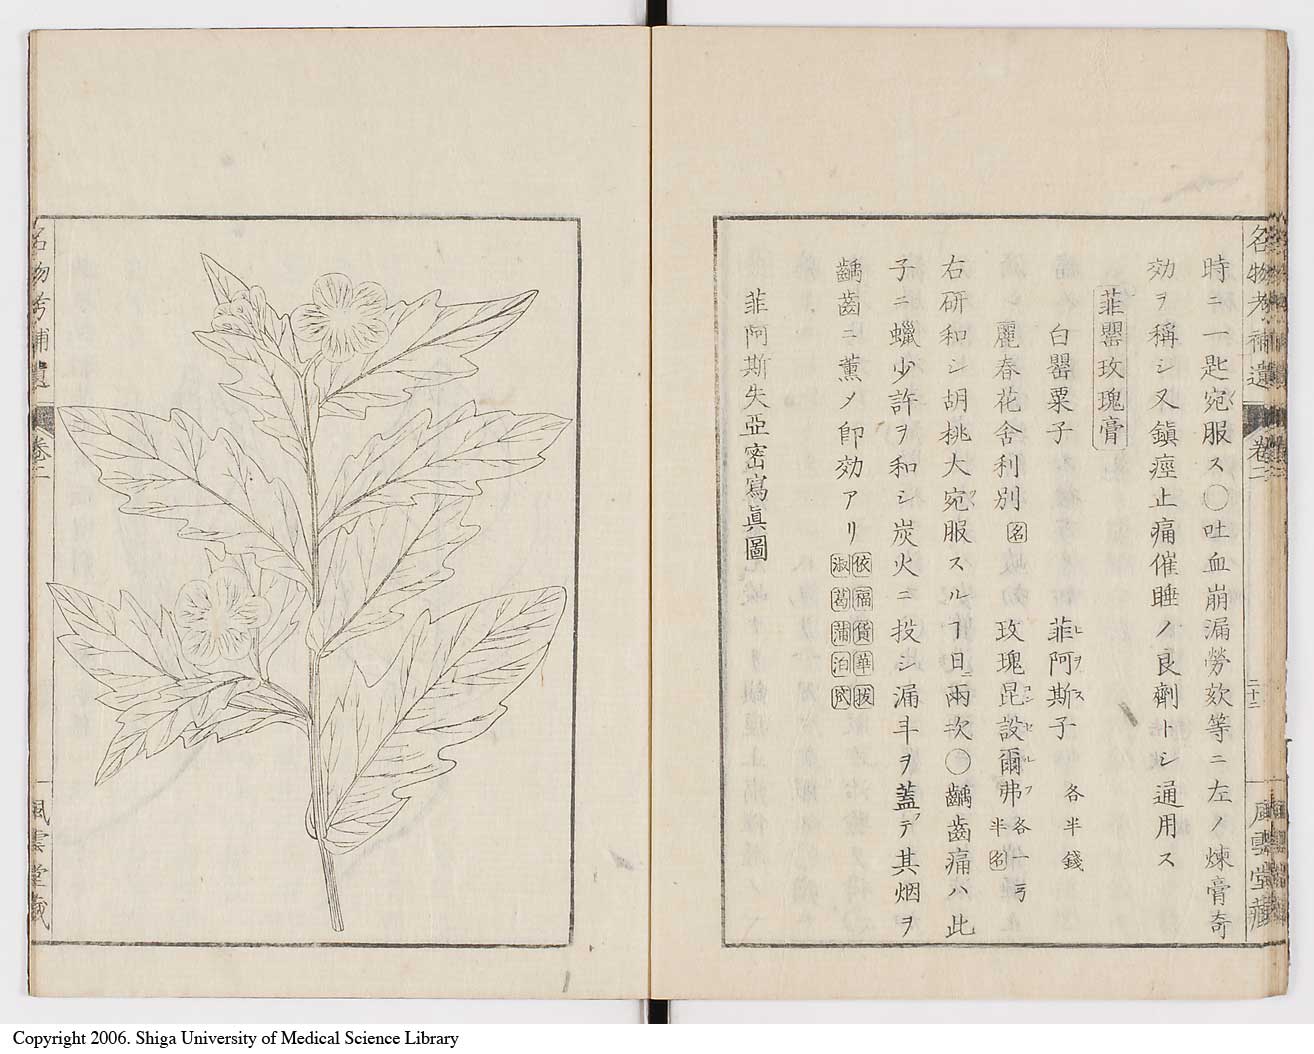 時ニ一匙宛服ス〇吐血崩漏勞欬等ニ左ノ煉膏奇
効ヲ稱シ又鎮痙止痛催睡ノ良劑トシ通用ス
菲罌玫瑰膏
白罌粟子 菲阿斯子 各半錢
ヒヲス
麗春花舍利別 名 玫瑰昆設爾弗 各一弓 半名
コンセルフ
右研和シ胡桃大宛服スルヿ日ニ兩次〇齲齒痛ハ此
子ニ蠟少許ヲ和シ炭火ニ投シ漏斗ヲ蓋テ其烟ヲ
齲齒ニ薫メ即効アリ 依福貨華拔 淑葛蒲泊
菲阿斯失亞密寫眞圖
名物考補遺 卷二 二十二 風雲堂藏
名物考補遺 卷二 風雲堂藏
Copyright 2006. Shiga University of Medical Science Library